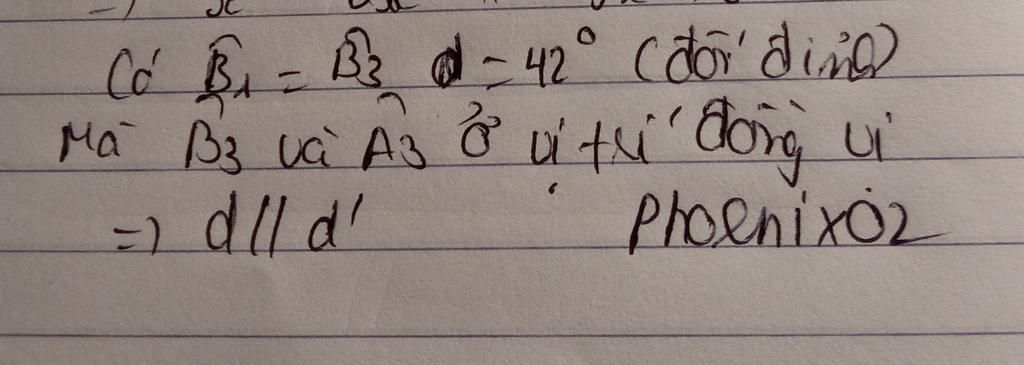 Có B̂1 = B̂3 = 42° (đối đỉnh)
Mà B̂3 và Â3 ở vị trí đồng vị
=) d // d'
PhoenixO2